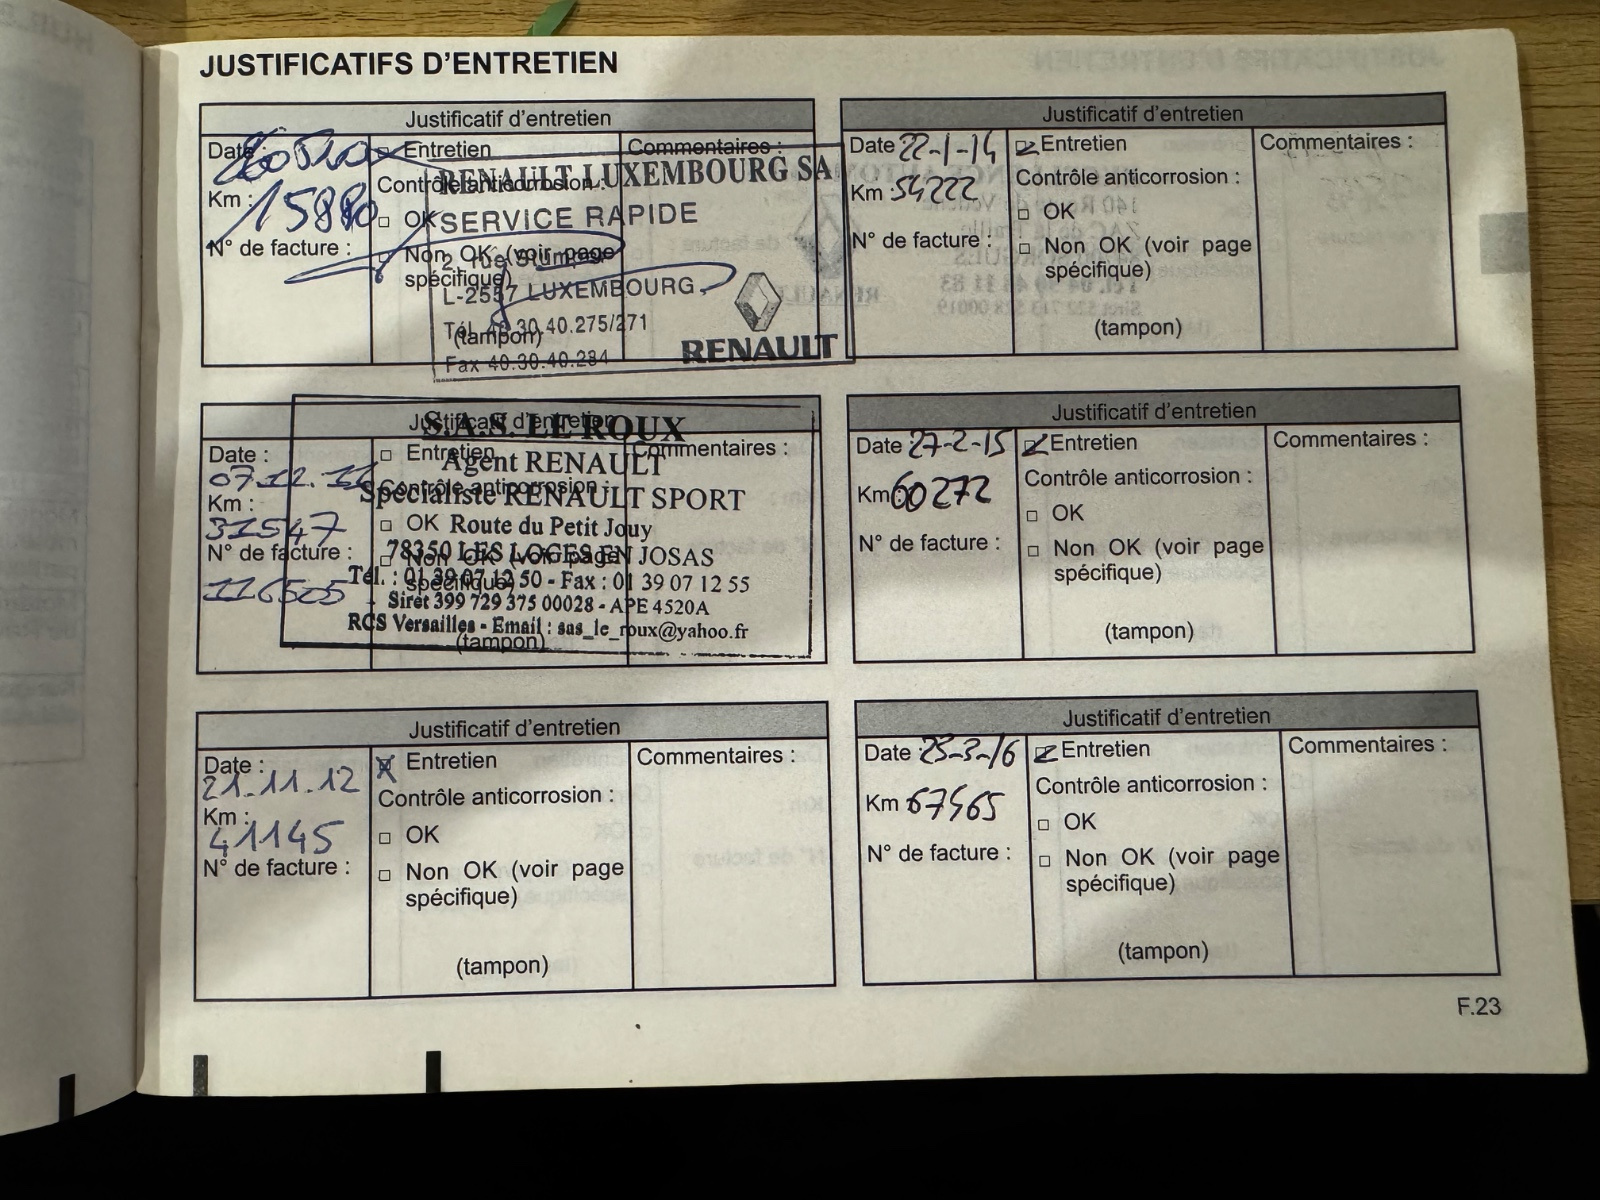 JUSTIFICATIFS D'ENTRETIEN
Justificatif d'entretien
Date :
Km :
N° de facture :
Entretien
Contrôle anticorrosion :
OK
Non OK (voir page
spécifique)
(tampon)
Commentaires :
RENAULT LUXEMBOURG SA
SERVICE RAPIDE
2, rue
L-2557 LUXEMBOURG
Tél. 40.30.40.275/271
Fax 40.30.40.284
RENAULT
Justificatif d'entretien
Date : 22-1-14
Km : 54222
N° de facture :
Entretien
Contrôle anticorrosion :
OK
Non OK (voir page
spécifique)
(tampon)
Commentaires :
Justificatif d'entretien
Date :
07.12.11
Km :
31547
N° de facture :
116505
Entretien
Contrôle anticorrosion :
OK
Non OK (voir page
spécifique)
(tampon)
Commentaires :
S.A.S. LE ROUX
Agent RENAULT
Spécialiste RENAULT SPORT
Route du Petit Jouy
78350 LES LOGES EN JOSAS
Tél. : 01 39 07 12 50 - Fax : 01 39 07 12 55
Siret 399 729 375 00028 - APE 4520A
RCS Versailles - Email : sas_le_roux@yahoo.fr
Justificatif d'entretien
Date : 27-2-15
Km : 60272
N° de facture :
Entretien
Contrôle anticorrosion :
OK
Non OK (voir page
spécifique)
(tampon)
Commentaires :
Justificatif d'entretien
Date :
21.11.12
Km :
41145
N° de facture :
Entretien
Contrôle anticorrosion :
OK
Non OK (voir page
spécifique)
(tampon)
Commentaires :
Justificatif d'entretien
Date : 25-3-16
Km 67465
N° de facture :
Entretien
Contrôle anticorrosion :
OK
Non OK (voir page
spécifique)
(tampon)
Commentaires :
F.23